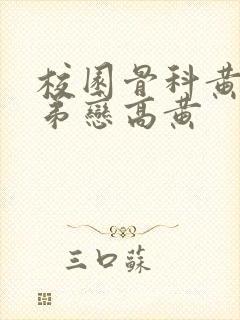 校園骨科黄
弟戀高黄
三口蘇